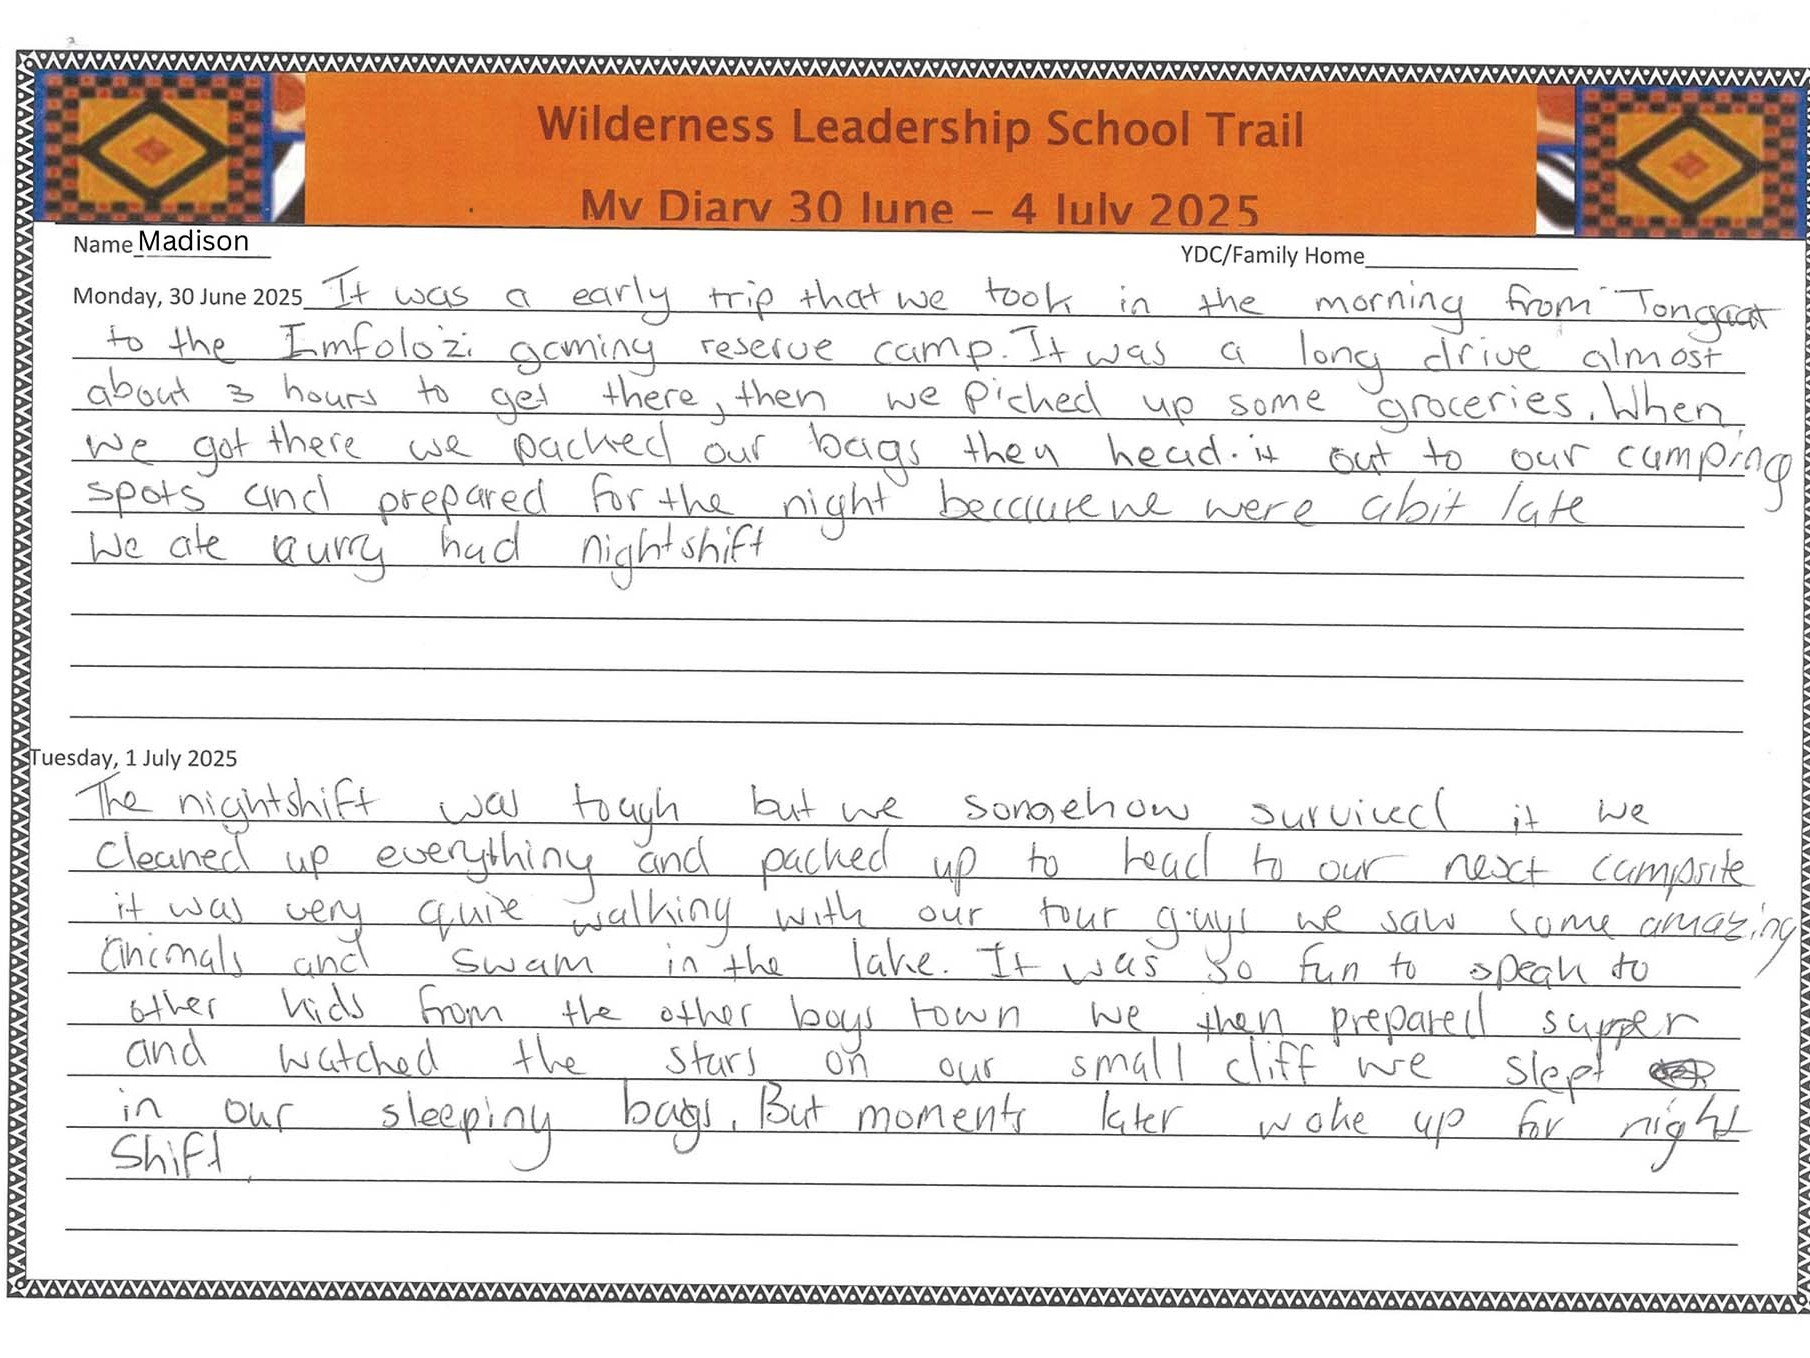 Wilderness Leadership School Trail
My Diary 30 June – 4 July 2025
Name Madison
YDC/Family Home
Monday, 30 June 2025 It was a early trip that we took in the morning from Tongaat
to the Imfolozi gaming reserve camp. It was a long drive almost
about 3 hours to get there, then we picked up some groceries. When
we got there we packed our bags then head it out to our camping
spots and prepared for the night because we were abit late
We ate curry had nightshift
Tuesday, 1 July 2025
The nightshift was tough but we somehow survived it we
cleaned up everything and packed up to head to our next campsite
it was very quite walking with our tour guys we saw some amazing
animals and swam in the lake. It was so fun to speak to
other kids from the other boys town we then prepared supper
and watched the stars on our small cliff we slept
in our sleeping bags. But moments later woke up for night
Shift.